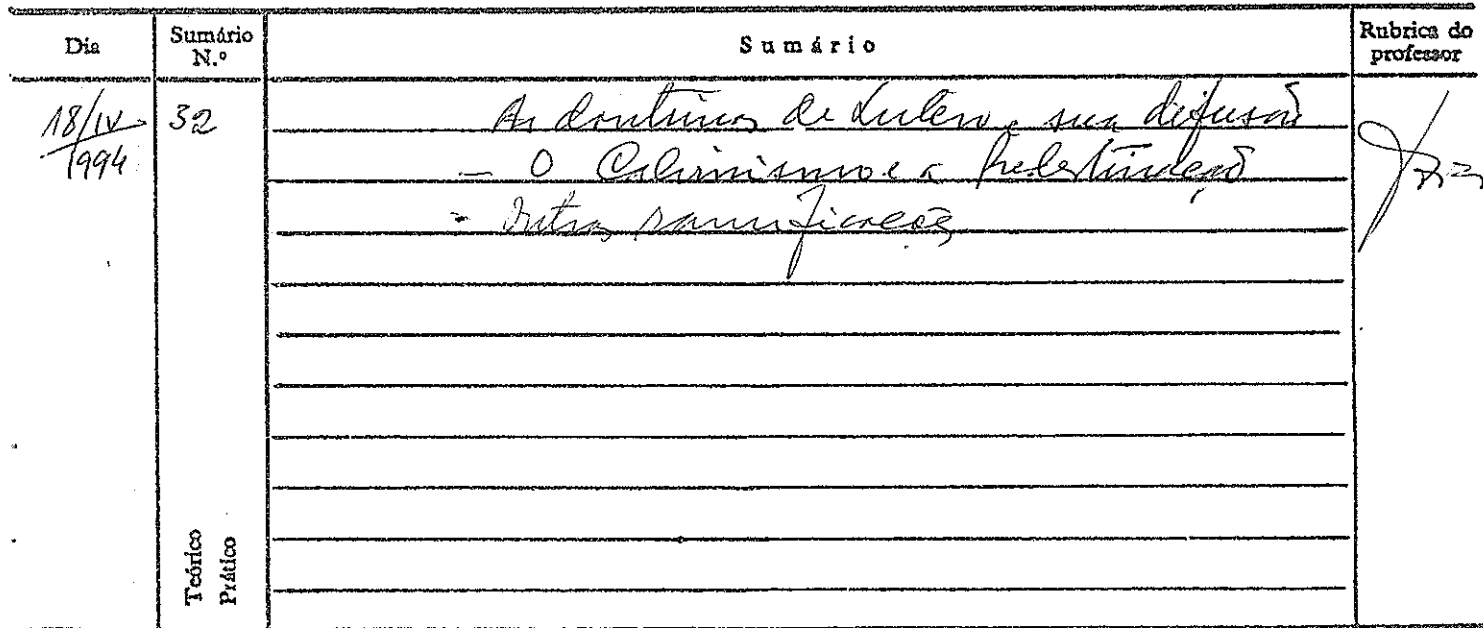 Dia
Sumário N.º
Sumário
Rubrica do professor
18/IV/1994
32
As doutrinas de Lutero, sua difusão
- O Calvinismo e a Predestinação
- Outras ramificações
Teórico
Prático